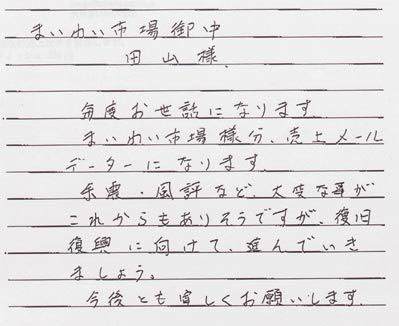 まいわい市場御中
田山様.
毎度お世話になります.
まいわい市場様分、売上メール
データーになります.
余震・風評など、大変な事が
これからもありそうですが、復旧
復興に向けて、進んでいき
ましょう。
今後とも宜しくお願いします.